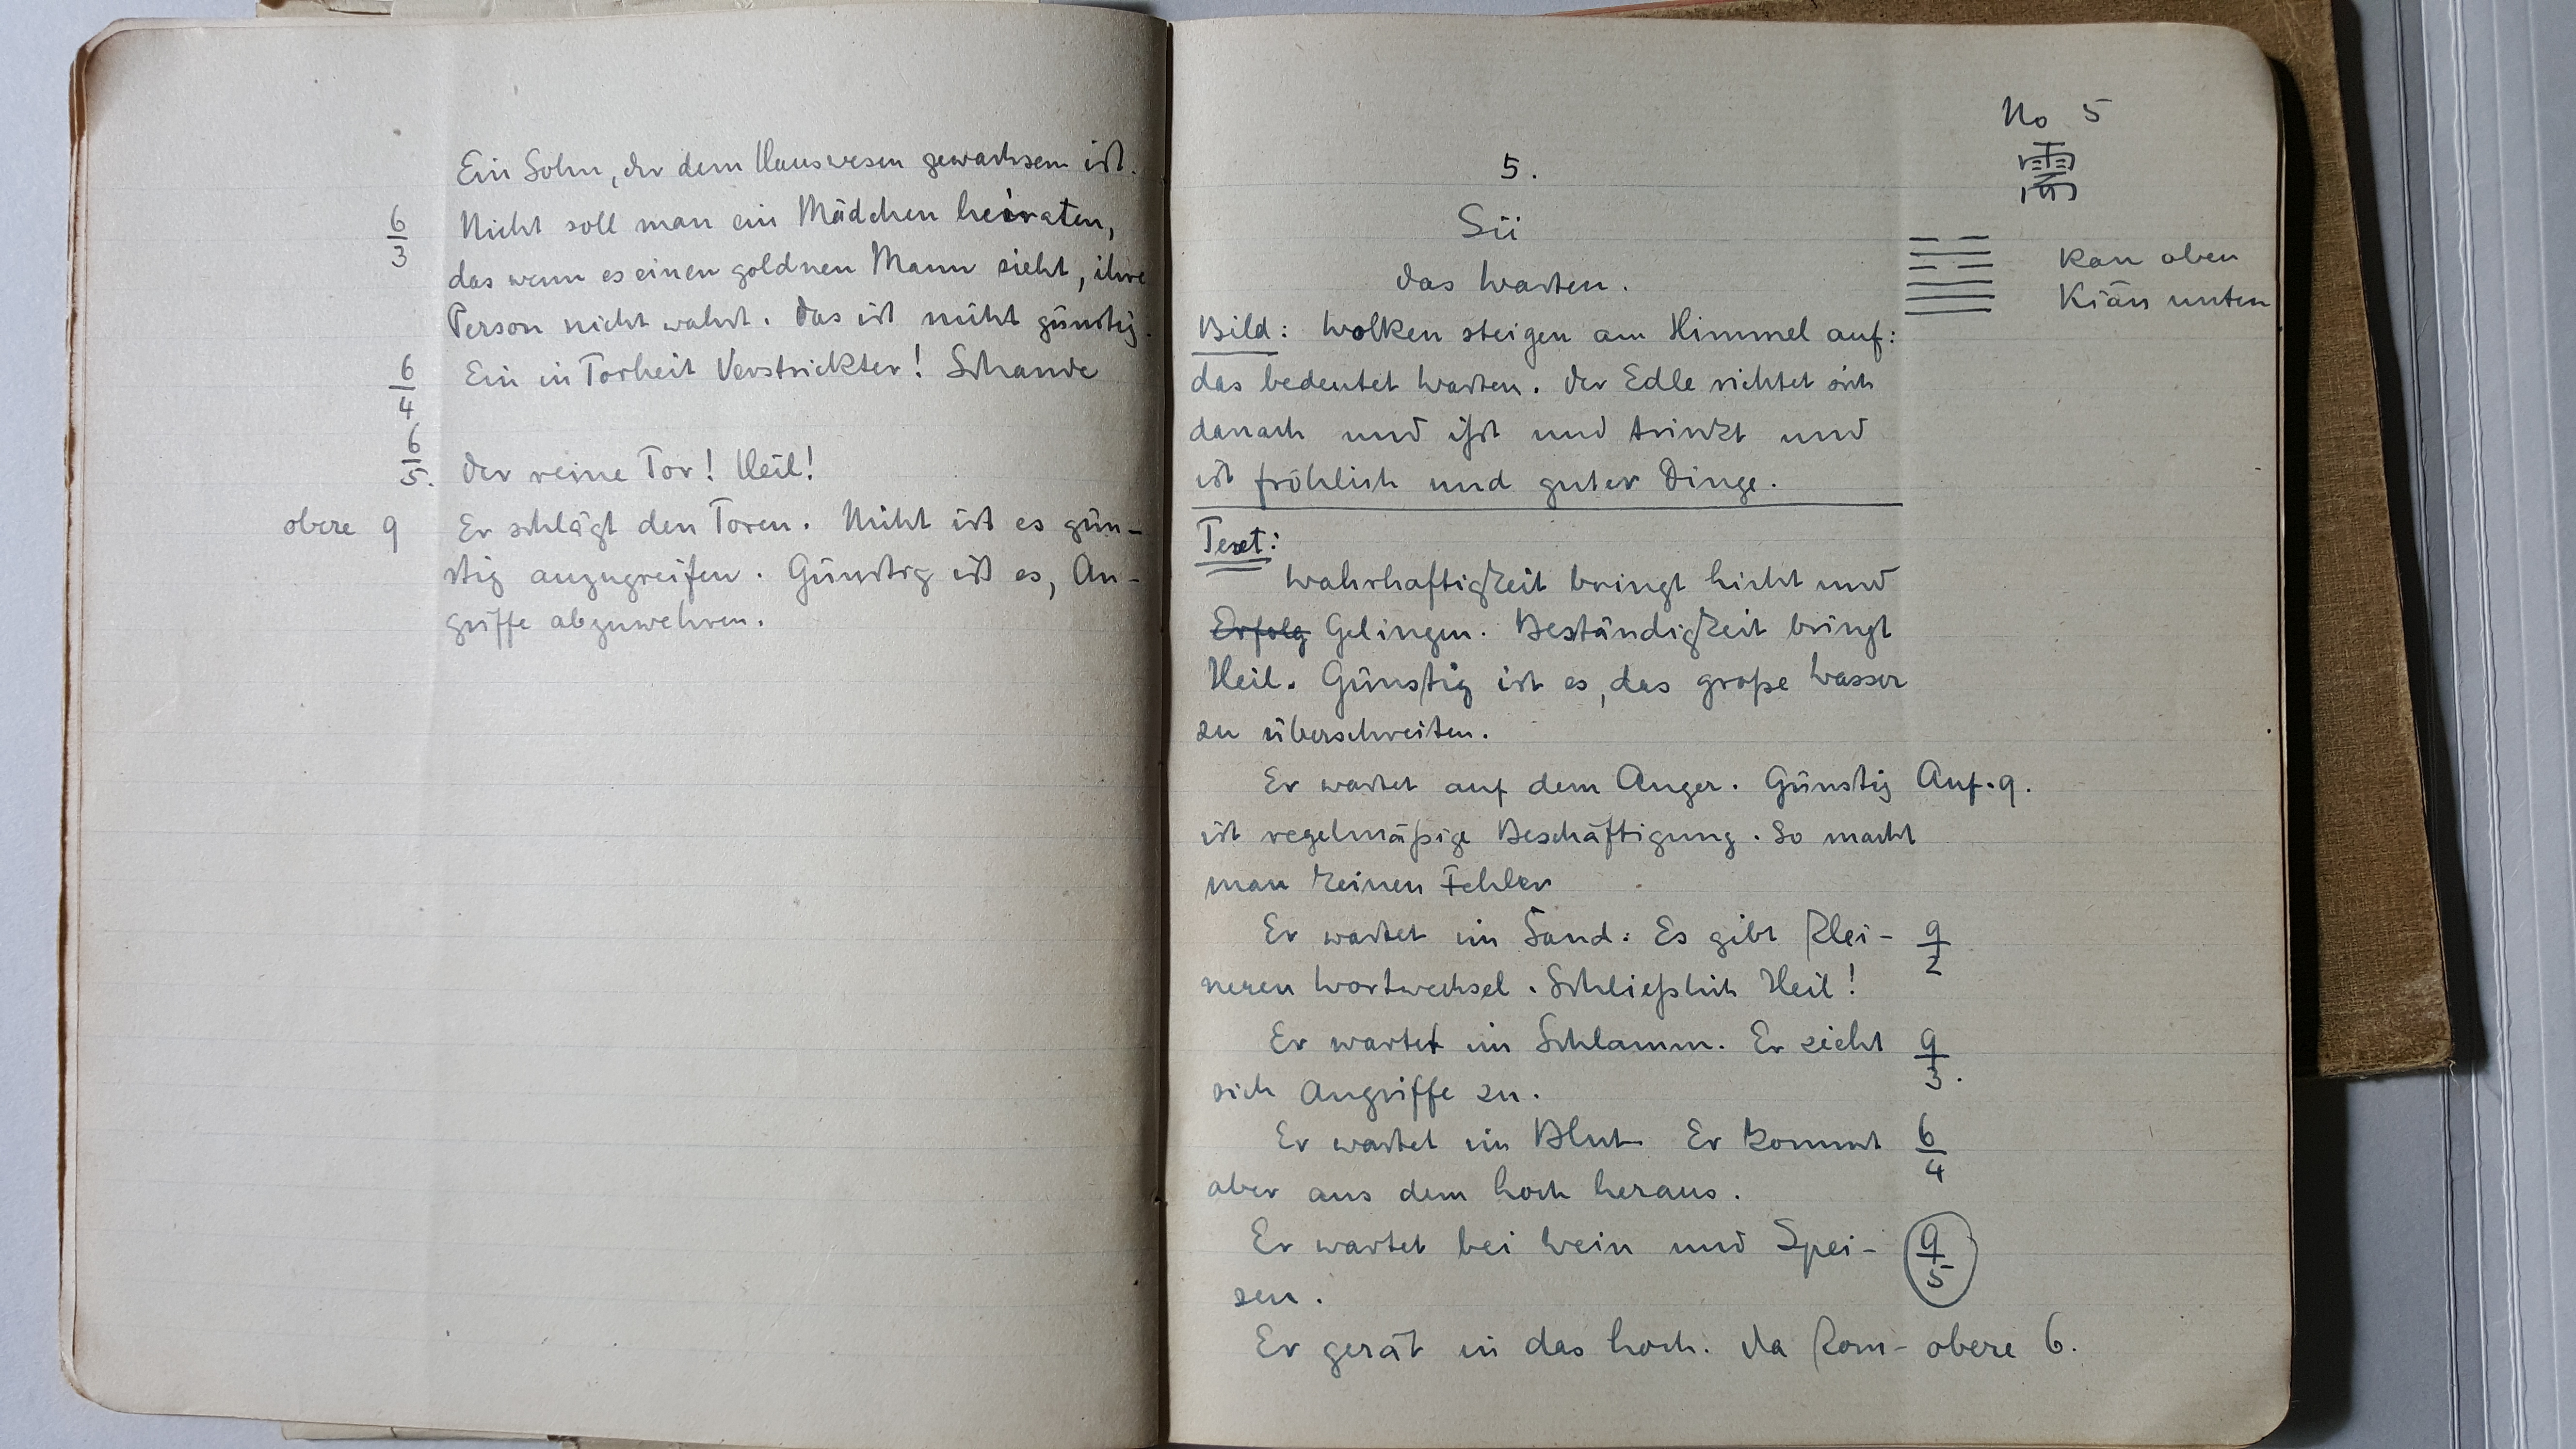 Ein Sohn, der dem Hauswesen gewachsen ist.
6/3 Nicht soll man ein Mädchen heiraten,
das wenn es einen goldnen Mann sieht, ihre
Person nicht wahrt. Das ist nicht günstig.
6/4 Ein in Torheit Verstrickter! Schande
6/5. Der reine Tor! Heil!
obere 9 Er schlägt den Toren. Nicht ist es gün-
stig anzugreifen. Günstig ist es, An-
griffe abzuwehren.
No 5
需
5.
Sü
Das Warten.
Kan oben
Kiän unten
Bild: Wolken steigen am Himmel auf:
das bedeutet Warten. Der Edle richtet sich
danach und ißt und trinkt und
ist fröhlich und guter Dinge.
Text:
Wahrhaftigkeit bringt Licht und
Erfolg Gelingen. Beständigkeit bringt
Heil. Günstig ist es, das große Wasser
zu überschreiten.
Er wartet auf dem Anger. Günstig Anf. 9.
ist regelmäßige Beschäftigung. So macht
man keinen Fehler
Er wartet im Sand: Es gibt klei- 9/2
neren Wortwechsel. Schließlich Heil!
Er wartet im Schlamm. Er zieht 9/3.
sich Angriffe zu.
Er wartet im Blut Er kommt 6/4
aber aus dem Loch heraus.
Er wartet bei Wein und Spei- 9/5
sen.
Er gerät in das Loch. Da kom- obere 6.